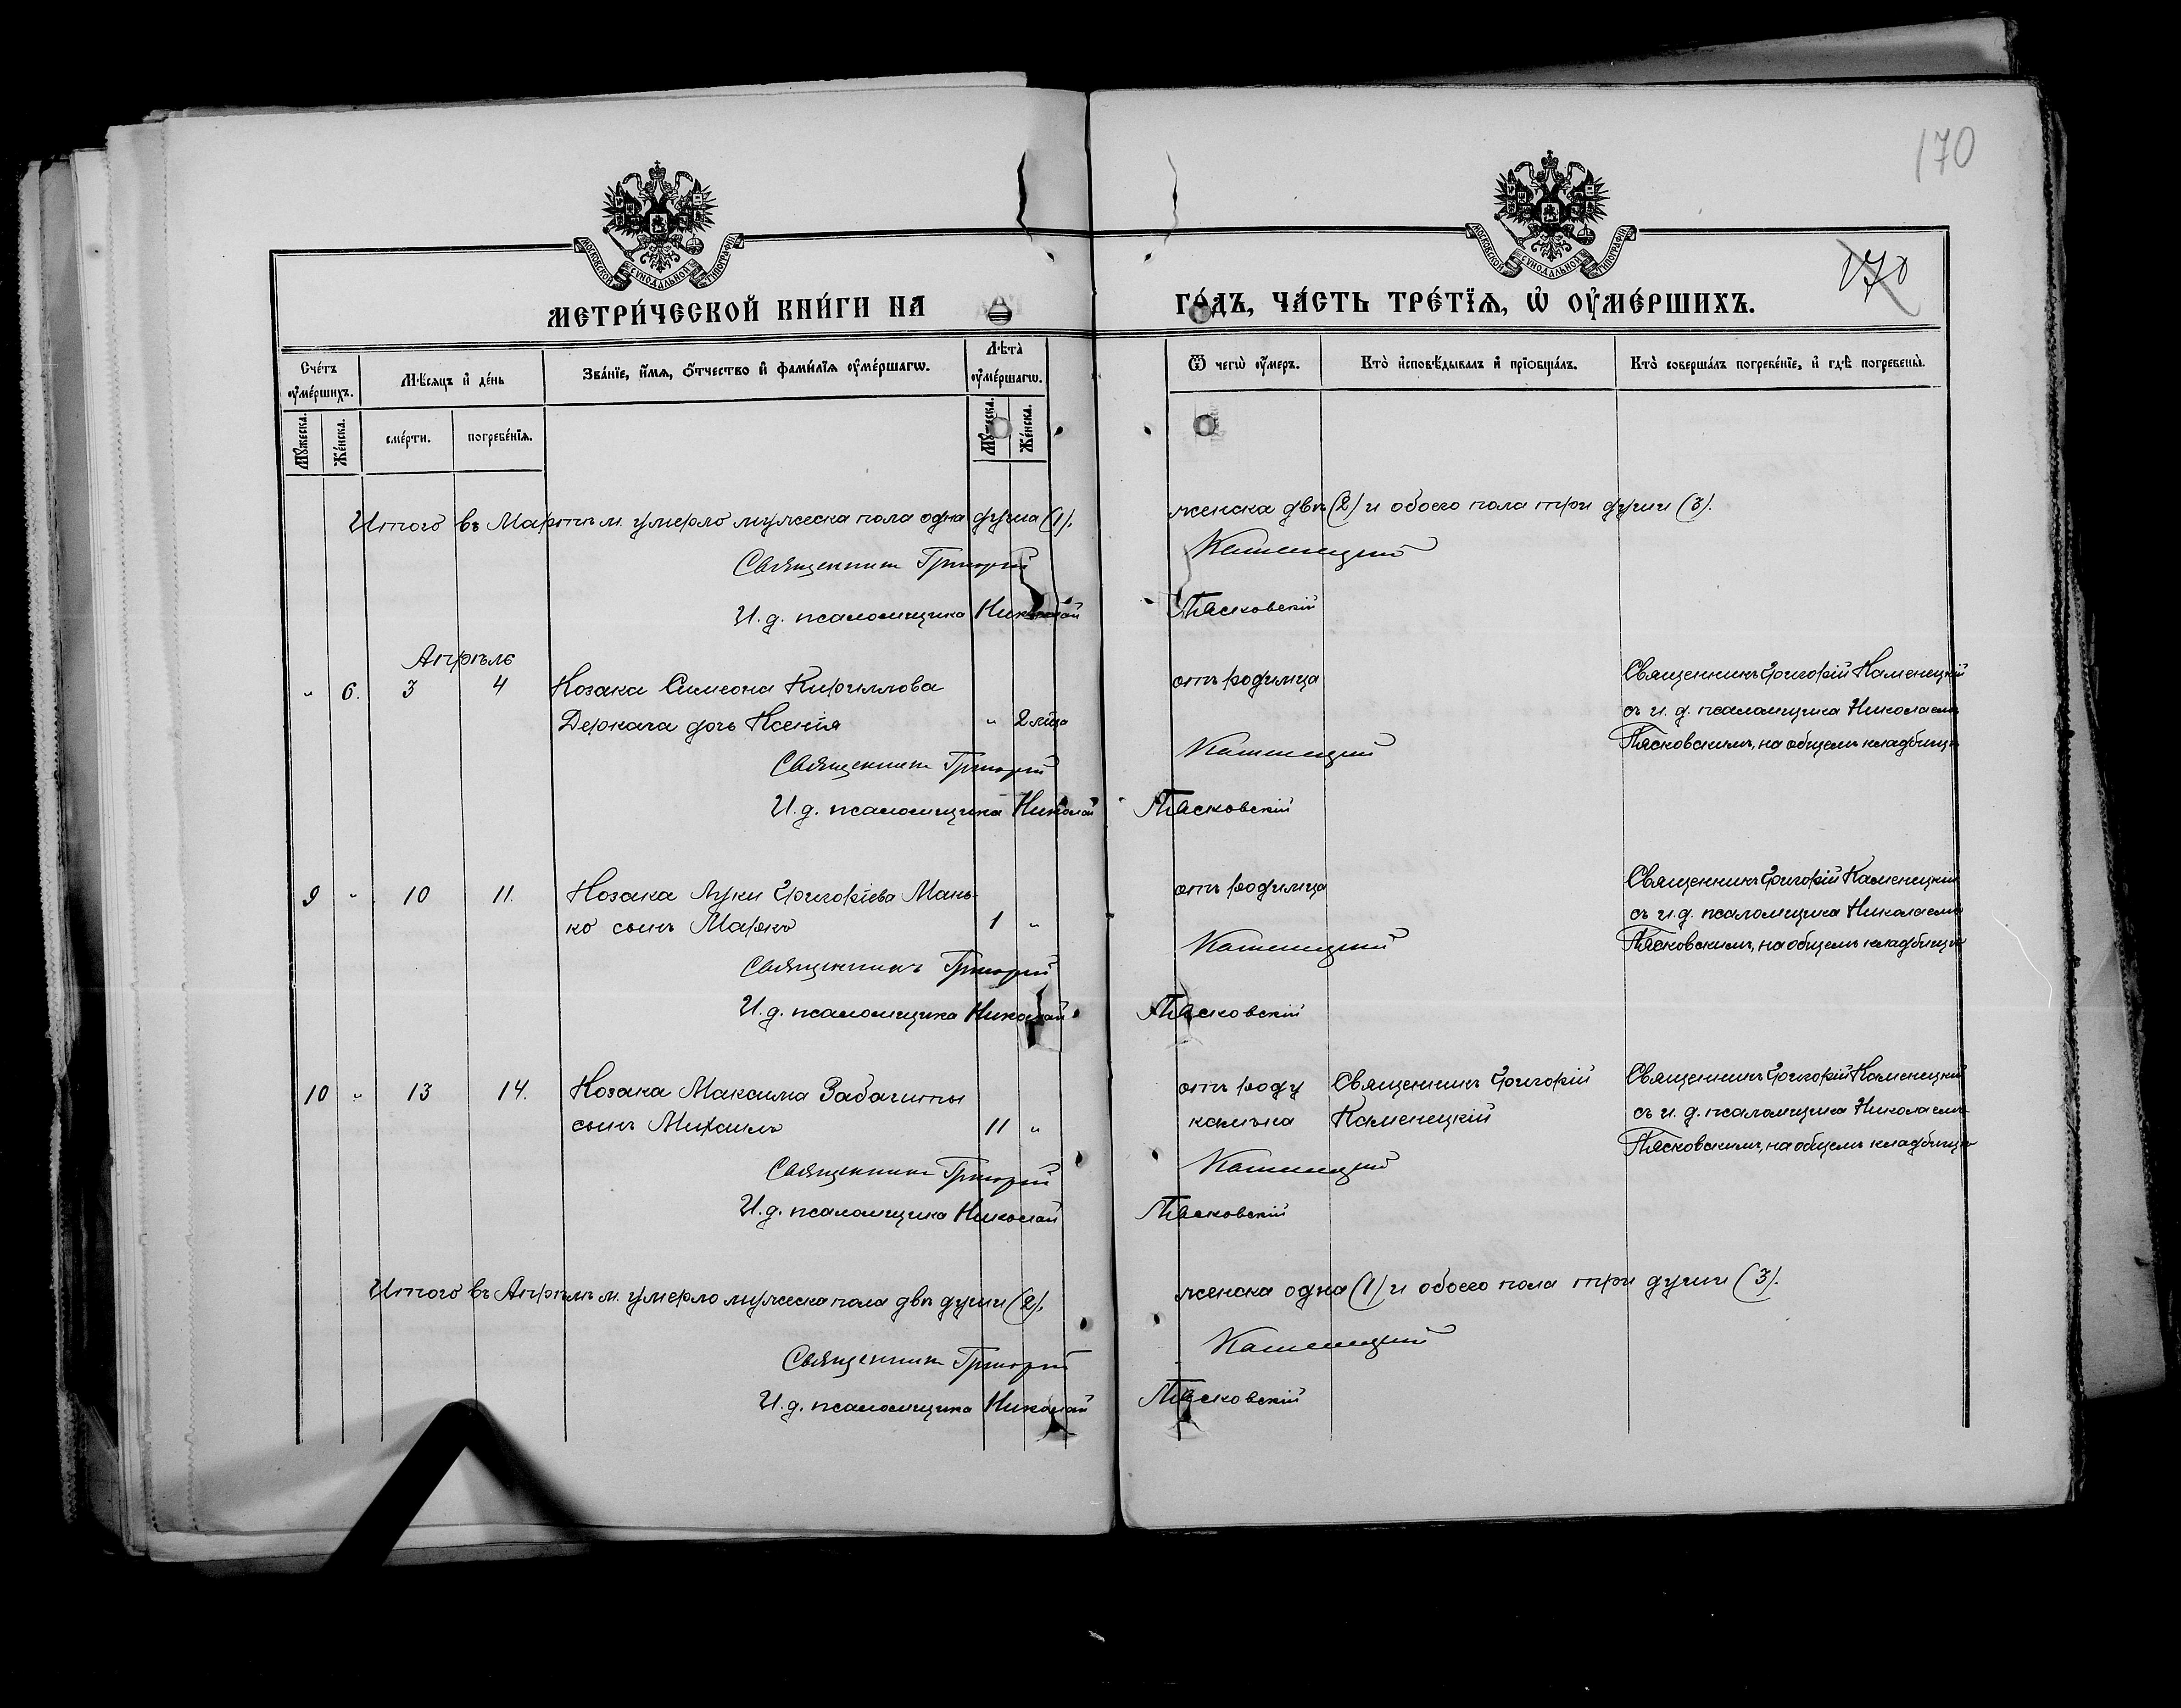 170
170
МОСКОВСКОЙ СУНОДАЛЬНОЙ ТИПОГРАФІИ
МОСКОВСКОЙ СУНОДАЛЬНОЙ ТИПОГРАФІИ
МЕТРИ́ЧЕСКОЙ КНИ́ГИ НА
ГО́ДЪ, ЧА́СТЬ ТРЕ́ТЇѦ, Ѡ҆ ОУ҆МЕ́РШИХЪ.
Сче́тъ оу҆ме́ршихъ.
Мꙋ́жеска.
Же́нска.
Мѣ́сяцъ и҆ де́нь
сме́рти.
погребе́нїѧ.
Зва́нїе, и҆́мѧ, ѻ҆́тчество и҆ фами́лїѧ оу҆ме́ршагѡ.
Лѣ́та оу҆ме́ршагѡ.
Мꙋ́жеска.
Же́нска.
Ѿ чегѡ̀ оу҆́меръ.
Кто̀ и҆сповѣ́дывалъ и҆ прїѡбща́лъ.
Кто̀ соверша́лъ погребе́нїе, и҆ гдѣ̀ погребены̀.
Итого въ Мартѣ м. умерло мужеска пола одна душа (1), женска двѣ (2) и обоего пола три души (3).
Священникъ Григорій Каменецкій
И. д. псаломщика Николай Пясковскій
Апрѣль
" 6. 3 4 Козака Симеона Кириллова
Деркача дочь Ксенія " 2 м͠ца
отъ родимца
Священникъ Григорій Каменецкій
съ и. д. псаломщика Николаемъ
Пясковскимъ, на общемъ кладбищѣ
Священникъ Григорій Каменецкій
И. д. псаломщика Николай Пясковскій
9 " 10 11. Козака Луки Григоріева Мань-
ко сынъ Марко 1 "
отъ родимца
Священникъ Григорій Каменецкій
съ и. д. псаломщика Николаемъ
Пясковскимъ, на общемъ кладбищѣ
Священникъ Григорій Каменецкій
И. д. псаломщика Николай Пясковскій
10 " 13 14. Козака Максима Забачиты
сынъ Михаилъ 11 "
отъ
Священникъ Григорій
Каменецкій
Священникъ Григорій Каменецкій
съ и. д. псаломщика Николаемъ
Пясковскимъ, на общемъ кладбищѣ
Священникъ Григорій Каменецкій
И. д. псаломщика Николай Пясковскій
Итого въ Апрѣлѣ м. умерло мужеска пола двѣ души (2), женска одна (1) и обоего пола три души (3).
Священникъ Григорій Каменецкій
И. д. псаломщика Николай Пясковскій